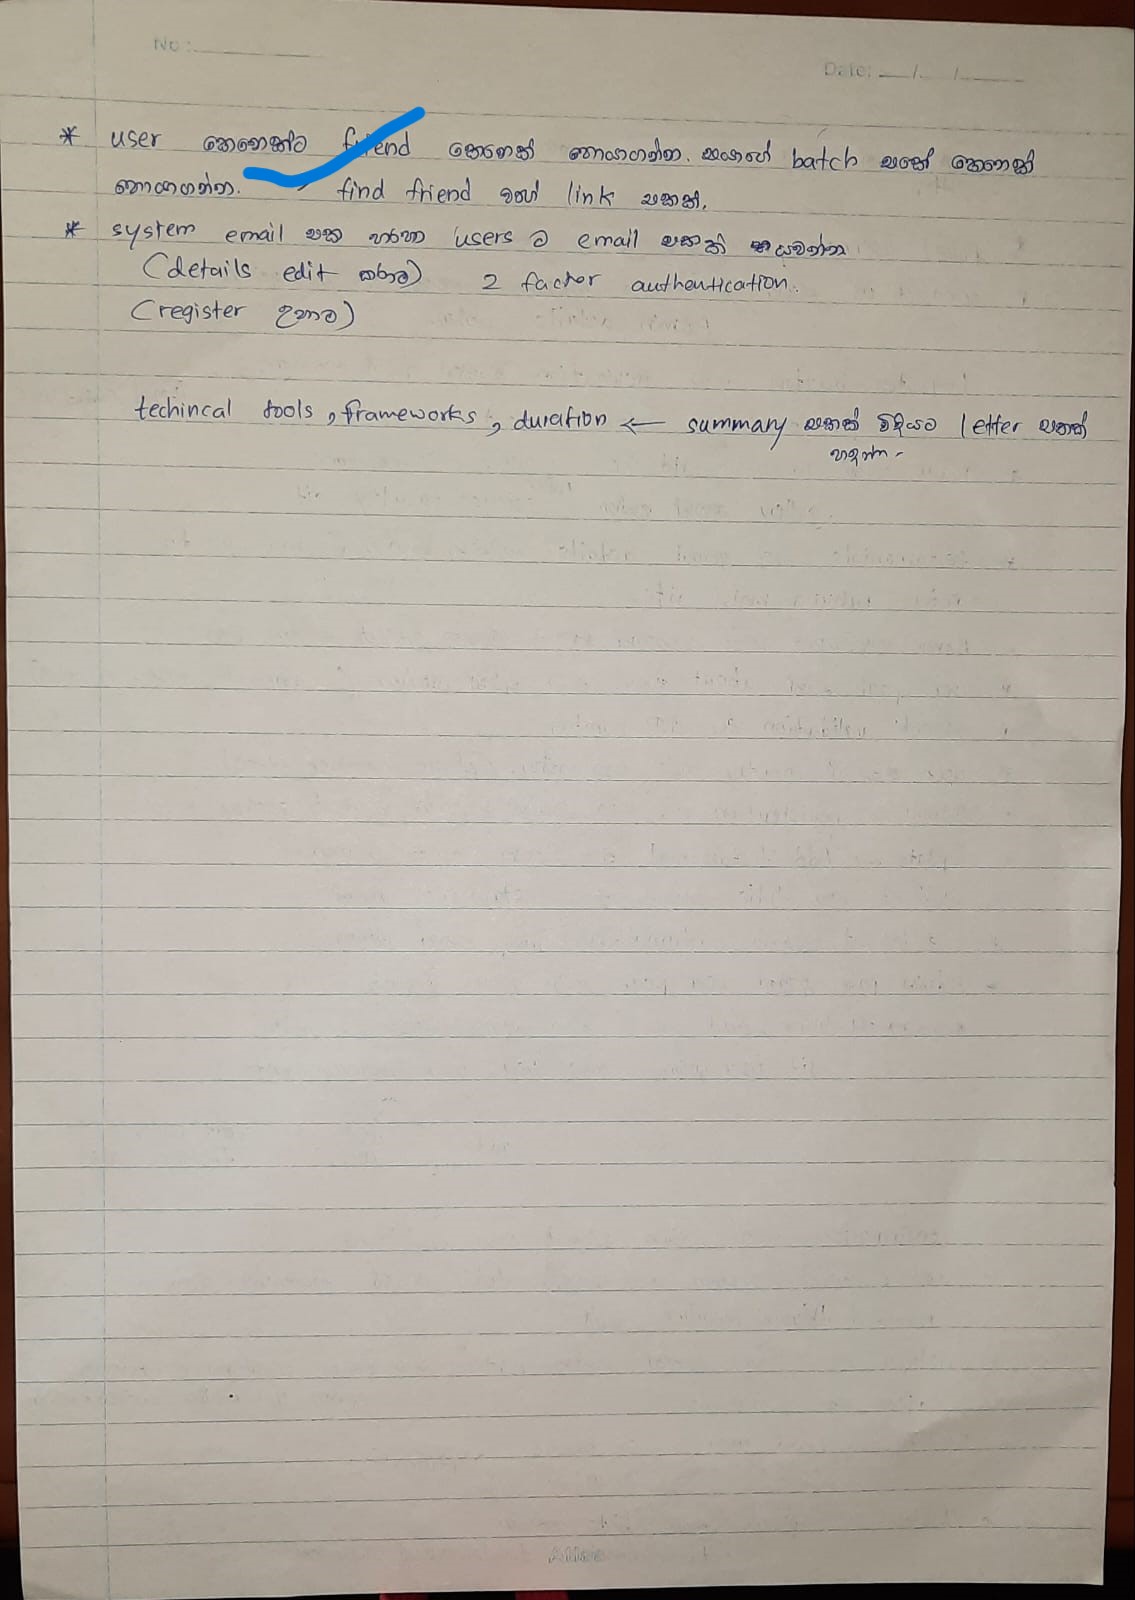 No:
Date: / /
* user කෙනෙක්ට friend කෙනෙක් හොයාගන්න. එයාගේ batch එකේ කෙනෙක්
හොයාගන්න. find friend වගේ link එකක්.
* system email එක හරහා users ට email එකක් යවන්න.
(details edit කරාම) 2 factor authentication.
(register උනාම)
techincal tools, frameworks, duration ← summary එකක් විදියට letter එකක්
හදන්න -
Atlas